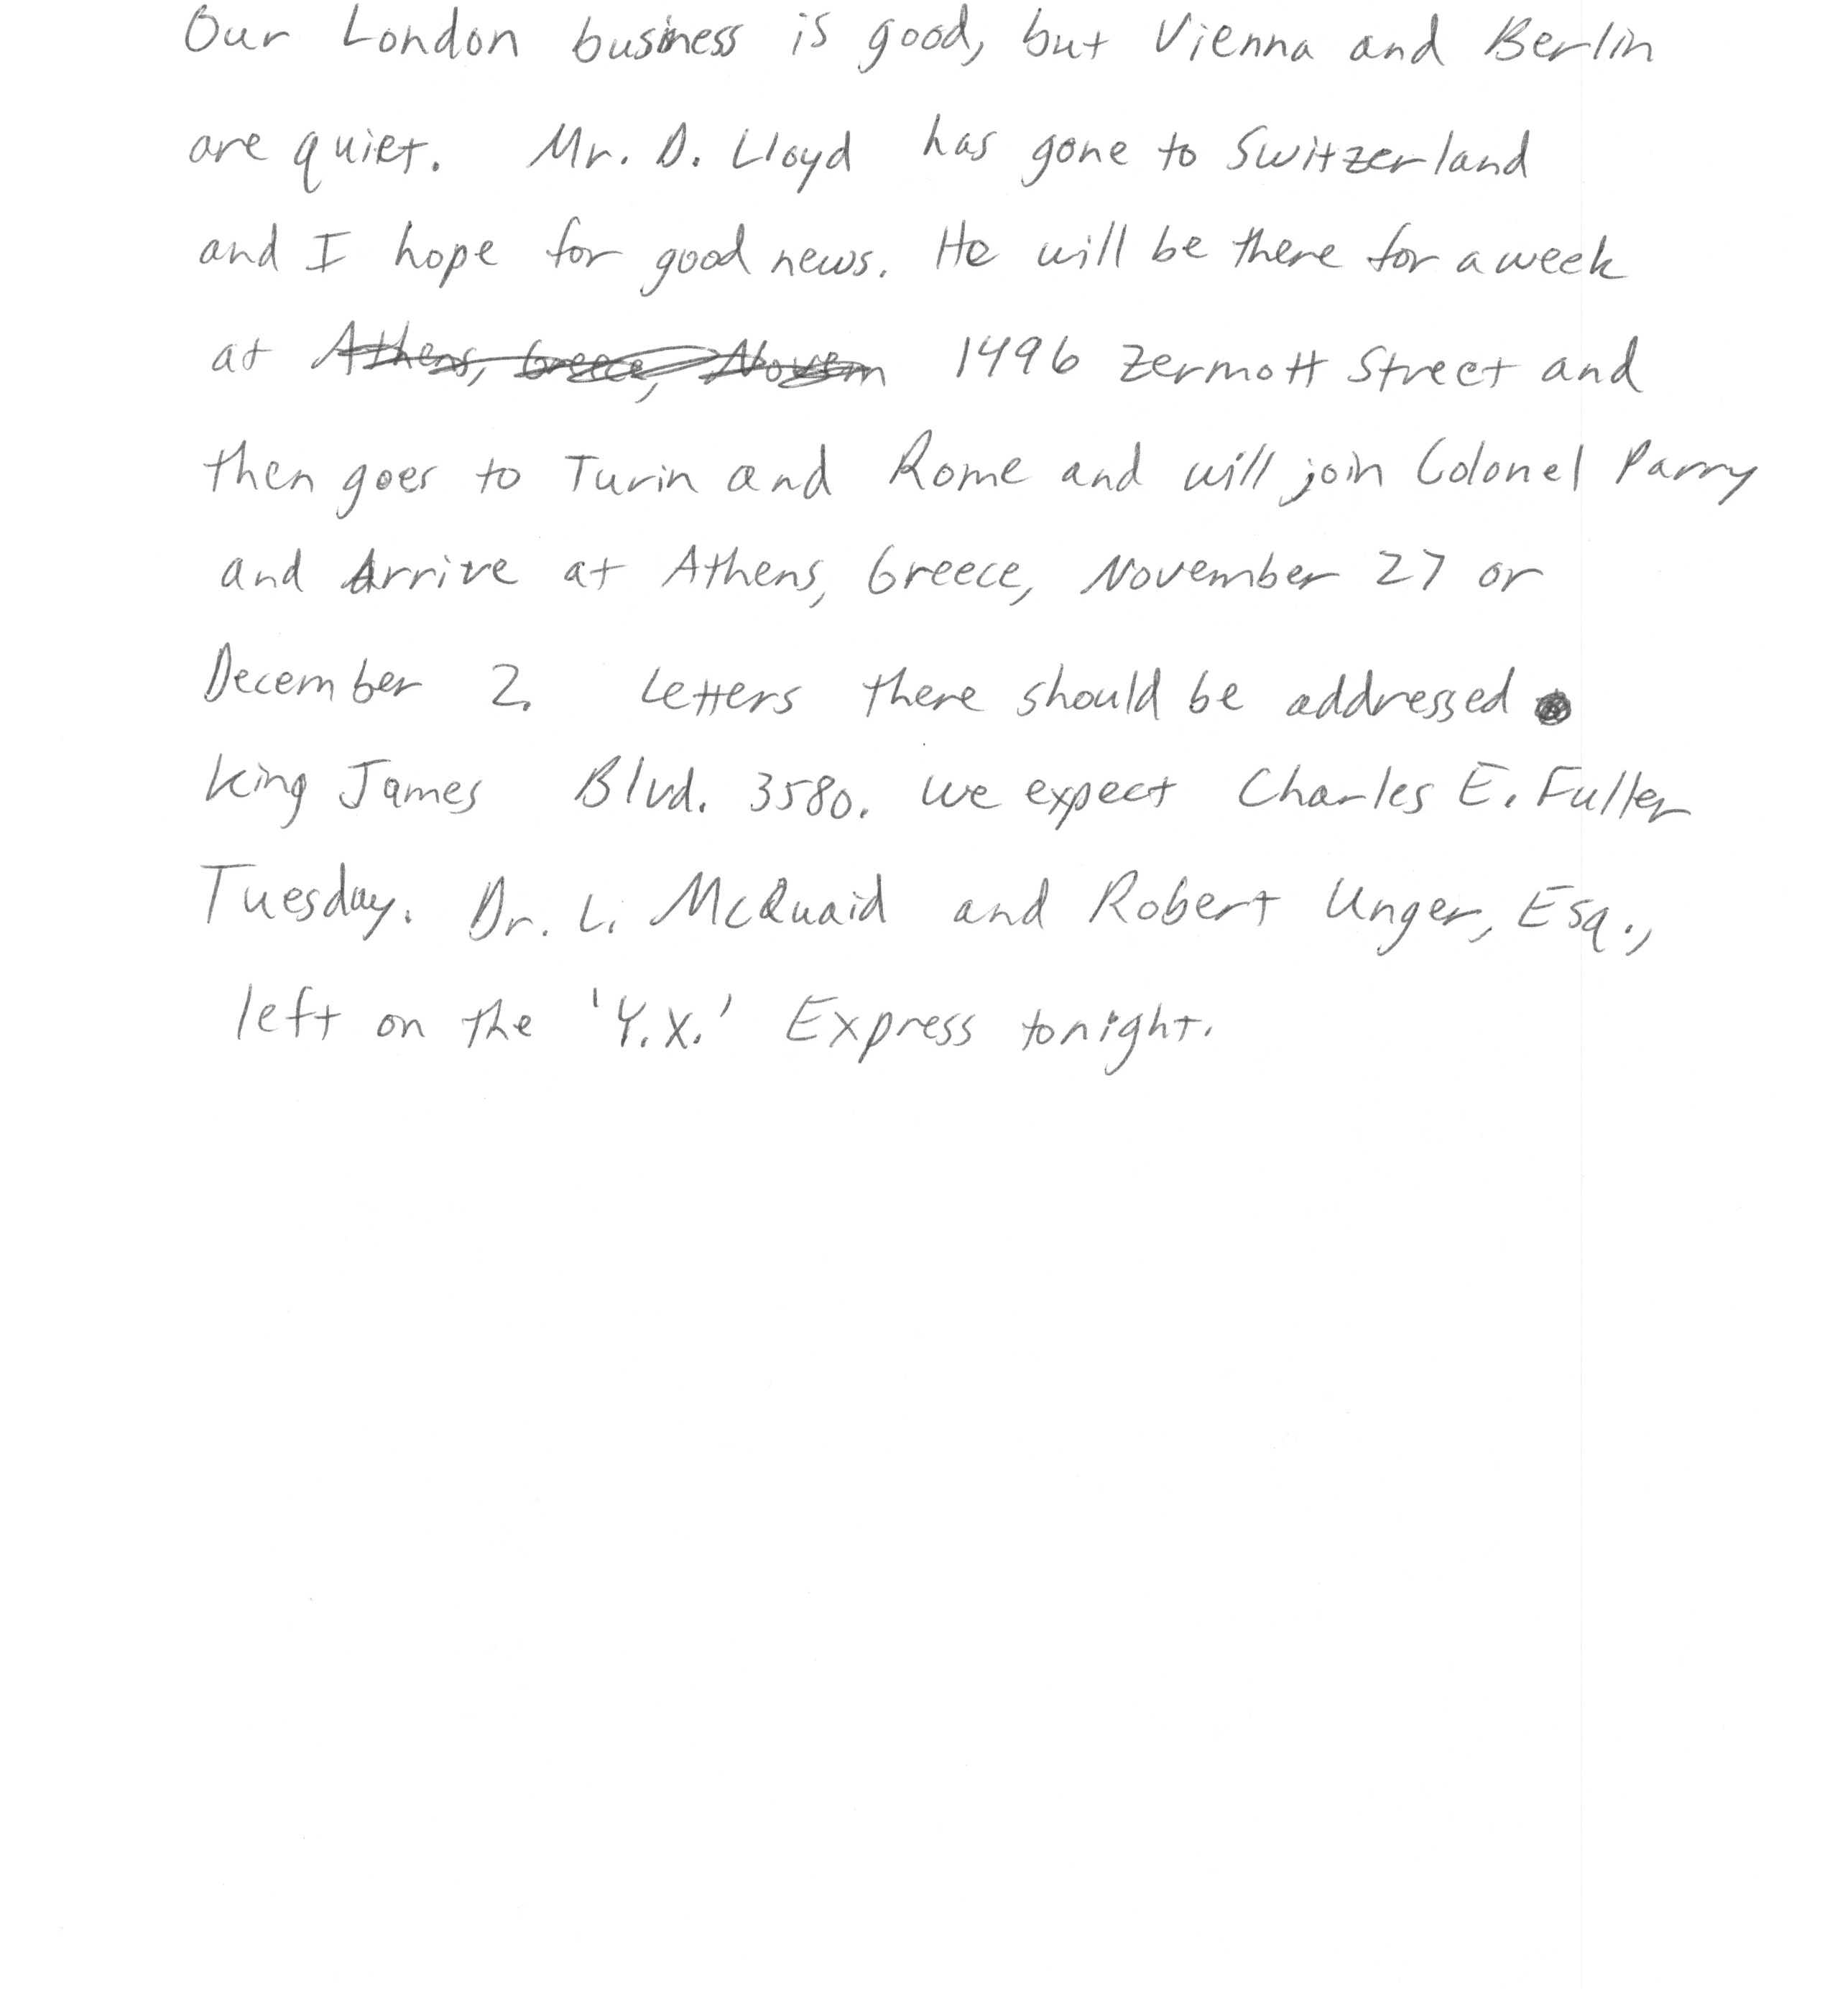 Our London business is good, but Vienna and Berlin
are quiet. Mr. D. Lloyd has gone to Switzerland
and I hope for good news. He will be there for a week
at Athens, Greece, Novem 1496 Zermott Street and
then goes to Turin and Rome and will join Colonel Parry
and Arrive at Athens, Greece, November 27 or
December 2. Letters there should be addressed
King James Blvd. 3580. We expect Charles E. Fuller
Tuesday. Dr. L. McQuaid and Robert Unger, Esq.,
left on the 'Y.X.' Express tonight.